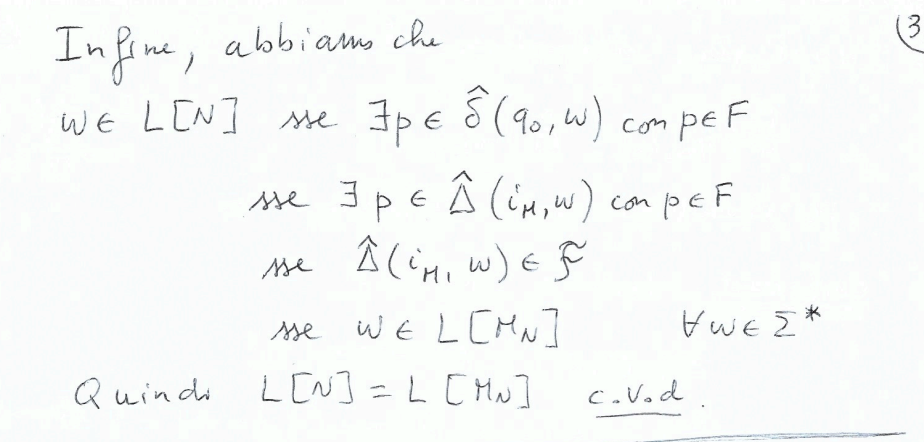 (3
Infine, abbiamo che
w ∈ L[N] sse ∃p ∈ δ̂(q₀, w) con p∈F
sse ∃ p ∈ Δ̂(i_M, w) con p∈F
sse Δ̂(i_M, w) ∈ F̃
sse w ∈ L[M_N] ∀w∈Σ*
Quindi L[N] = L[M_N] c.v.d.